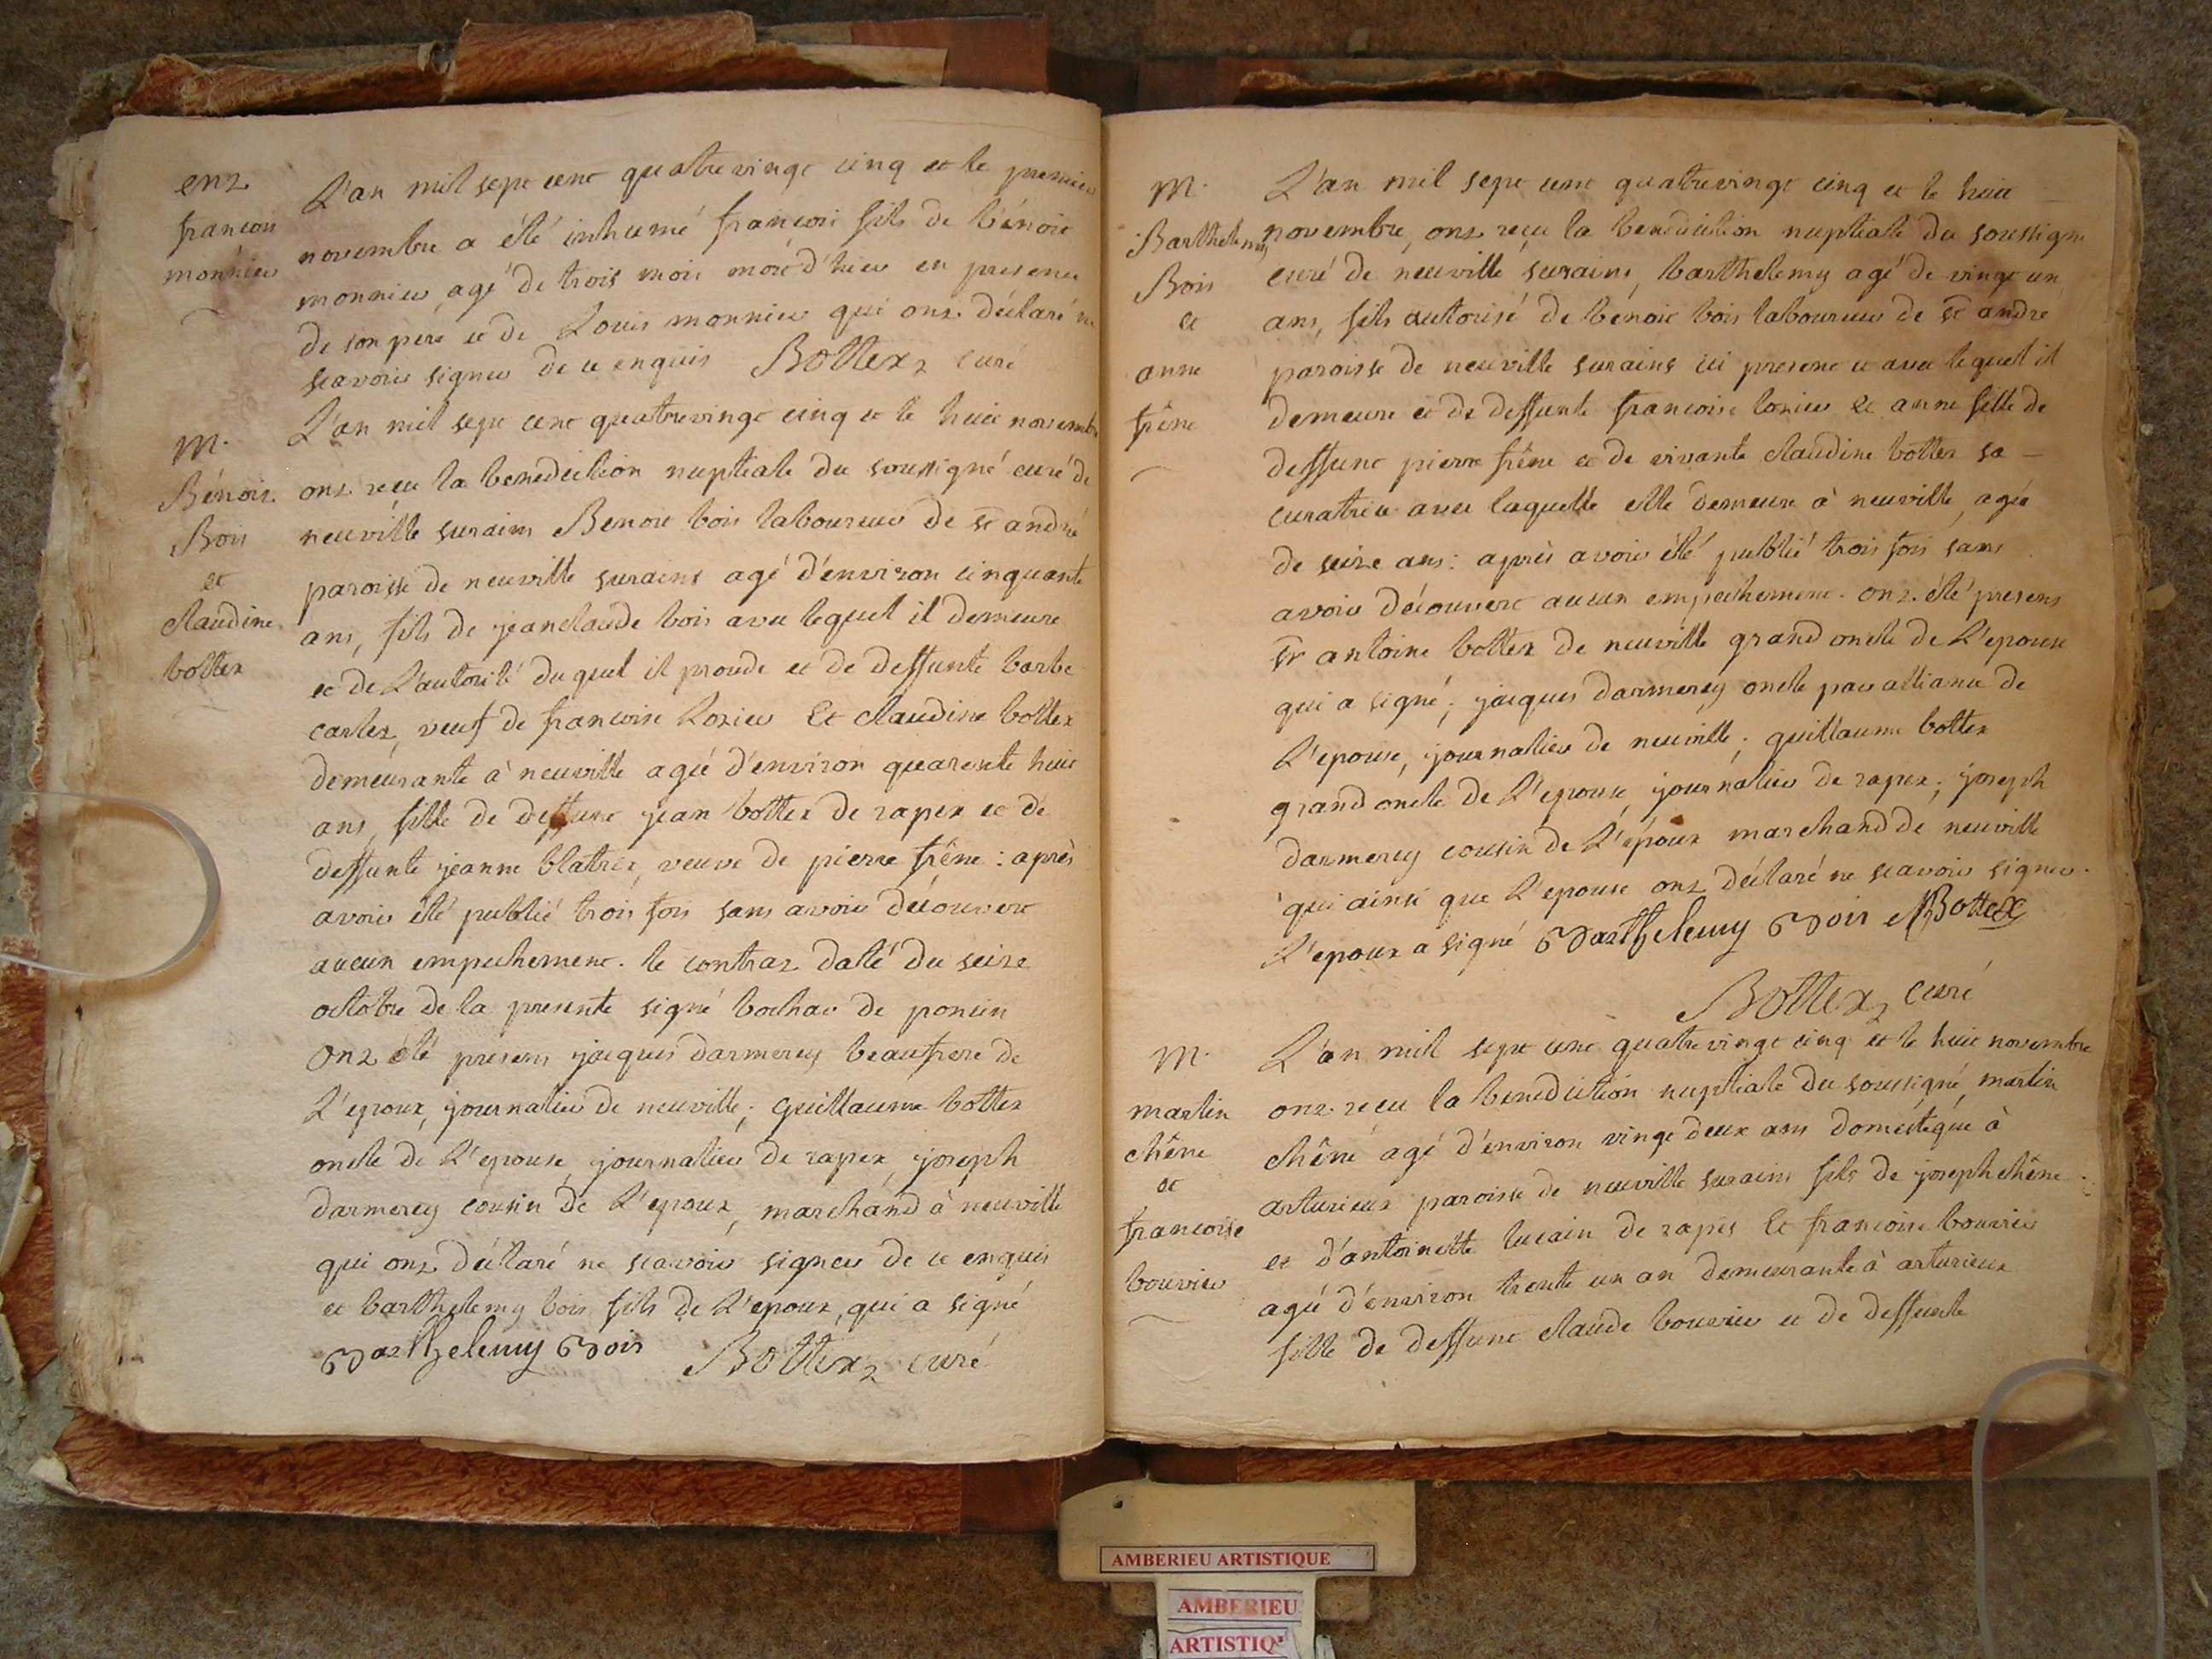 ent
francois
monnier
L'an mil sept cent quatrevingt cinq et le premier
novembre a été inhumé françois fils de bénoit
monnier agé de trois mois mort d'hier en presence
de son pere et de Louis monnier qui ont déclaré ne
scavoir signer de ce enquis Bottex curé
M.
Bénoit
Bois
et
claudine
bottex
L'an mil sept cent quatrevingt cinq et le huit novembre
ont reçu la benediction nuptiale du soussigné curé de
neuville surains Benoit bois laboureur de st andré
paroisse de neuville surains agé d'environ cinquante
ans, fils de jeanclaude bois avec lequel il demeure
et de L'autorité duquel il procede et de deffunte barbe
carles, veuf de francoise Loxier Et claudine bottex
demeurante à neuville agée d'environ quarente huit
ans, fille de deffunt jean bottex de rapex et de
deffunte jeanne blatrix, veuve de pierre frêne : après
avoir été publié trois fois sans avoir découvert
aucun empechement. le contrat daté du seize
octobre de la presente signé bochar de poncin
Ont été presens jacques darmerey beaufrere de
L'epoux, journalier de neuville ; guillaume bottex
oncle de L'epouse, journalier de rapex, joseph
darmerey cousin de L'epoux, marchand à neuville
qui ont déclaré ne scavoir signer de ce enquis
et barthelemy bois fils de L'epoux, qui a signé
Barthelemy Bois Bottex curé
M.
Barthelemy
Bois
et
anne
frêne
L'an mil sept cent quatrevingt cinq et le huit
novembre, ont reçu la benediction nuptiale du soussigné
curé de neuville surains, barthelemy agé de vingt un
ans, fils autorisé de bénoit bois laboureur de st andre
paroisse de neuville surains ici present et avec lequel il
demeure et de deffunte francoise loxier Et anne fille de
deffunt pierre frêne et de vivante claudine bottex sa
curatrice avec laquelle elle demeure à neuville, agée
de seize ans : après avoir été publié trois fois sans
avoir découvert aucun empechement. ont été presens
sr antoine bottex de neuville grand oncle de L'epouse
qui a signé ; jacques darmerey oncle par alliance de
L'epouse, journalier de neuville ; guillaume bottex
grand oncle de L'epouse journalier de rapex ; joseph
darmerey cousin de L'époux marchand de neuville
qui ainsi que L'epouse ont déclaré ne scavoir signer.
L'epoux a signé Barthelemy Bois Bottex
Bottex curé
M.
martin
chêne
et
francoise
bouvier
L'an mil sept cent quatrevingt cinq et le huit novembre
ont reçu la benediction nuptiale du soussigné, martin
chêne agé d'environ vingt deux ans domestique à
arturieux paroisse de neuville surains fils de joseph chêne
et d'antoinette lucain de rapes Et francoise bouvier
agée d'environ trente un an demeurante à arturieux
fille de deffunt claude bouvier et de deffunte
AMBERIEU ARTISTIQUE
AMBERIEU
ARTISTIQ